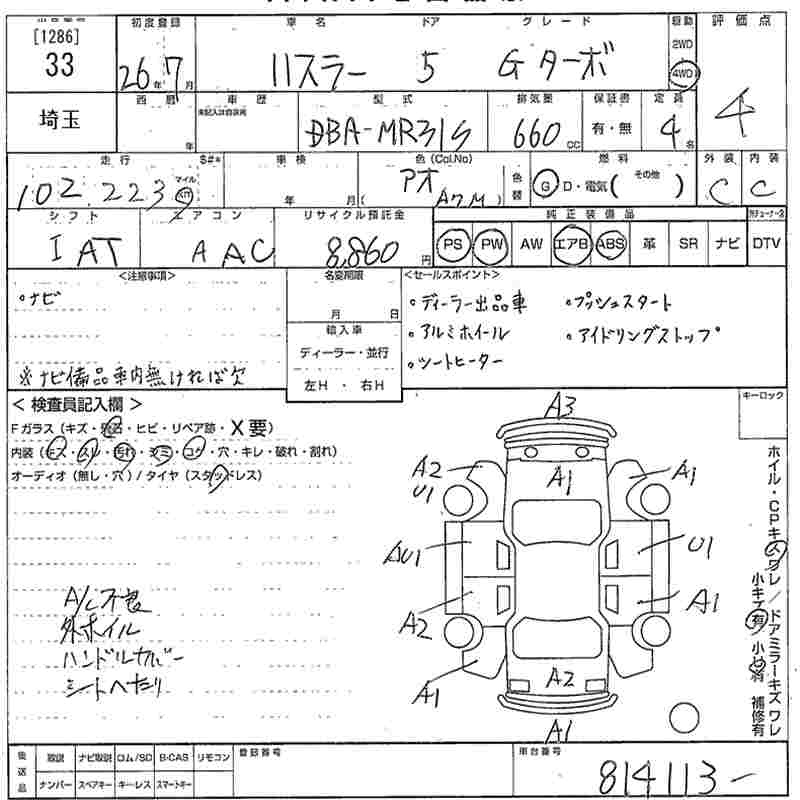 [1286]
33
初度登録
26年7月
車名
ハスラー
ドア
5
グレード
Gターボ
駆動
2WD
4WD
評価点
4
埼玉
西暦
年
車歴
未記入は自家用
型式
DBA-MR31S
排気量
660cc
保証書
有・無
定員
4名
走行
102,223
マイル
km
S#*
車検
年 月
色(Col.No)
アオ
色替
燃料
G D・電気( その他 )
外装
C
内装
C
シフト
I AT
エアコン
A AC
リサイクル預託金
8,860円
純正装備品
PS PW AW エアB ABS 革 SR ナビ DTV
<注意事項>
。ナビ
※ナビ備品車内無ければ欠
名変期限
月 日
輸入車
ディーラー・並行
左H・右H
<セールスポイント>
。ディーラー出品車 。プッシュスタート
。アルミホイール 。アイドリングストップ
。シートヒーター
<検査員記入欄>
Fガラス(キズ・飛石・ヒビ・リペア跡・X要)
内装(キズ・スレ・汚れ・シミ・コゲ・穴・キレ・破れ・割れ)
オーディオ(無し・穴)/タイヤ(スタッドレス)
A/C不良
外ホイル
ハンドルカバー
シートヘタリ
キーロック
A3
A2
U1
A1
A1
AU1
U1
A2
A1
A1
A2
A1
ホイル・CPキズワレ/ドアミラーキズワレ
小キズ有 小凹有 補修有
後送品
取説 ナビ取説 ロム/SD B-CAS リモコン
ナンバー スペアキー キーレス スマートキー
登録番号
車台番号
814113-